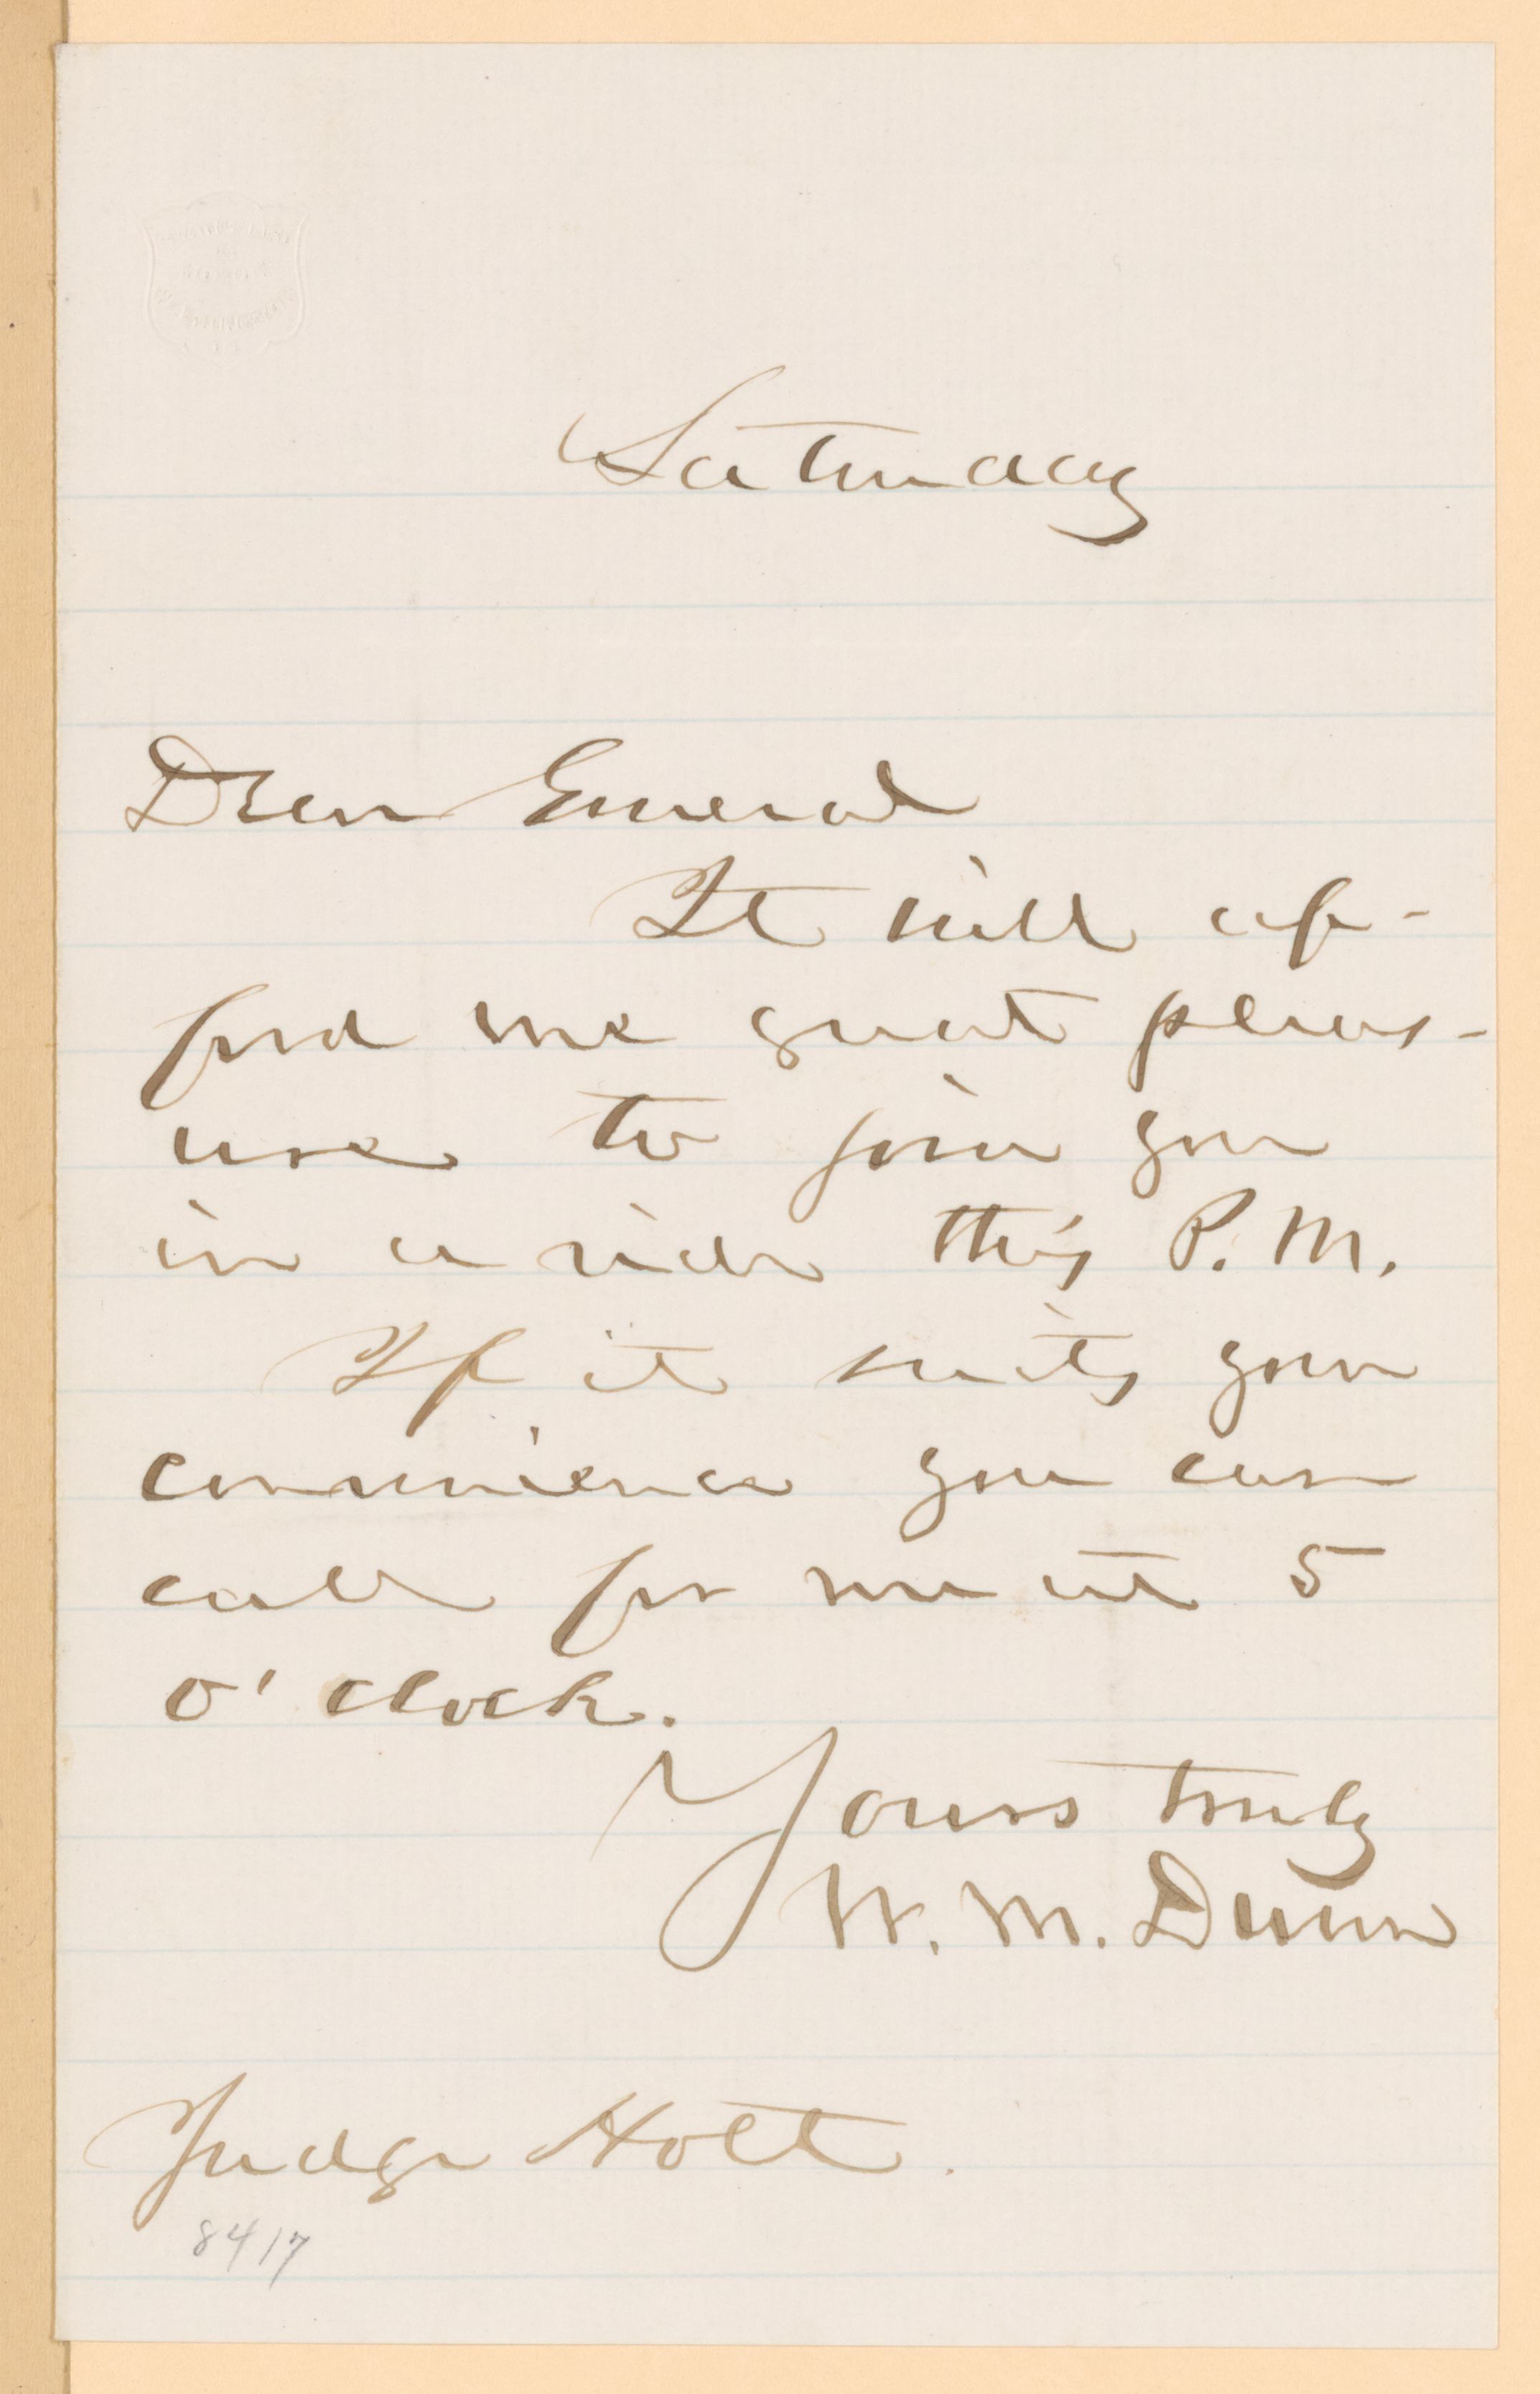 Saturday
Dear General
It will af-
ford me great pleas-
ure to join you
in a ride this P.M.
If it suits your
convenience you can
call for me at 5
o'clock.
Yours truly
W. M. Dunn
Judge Holt.
8417